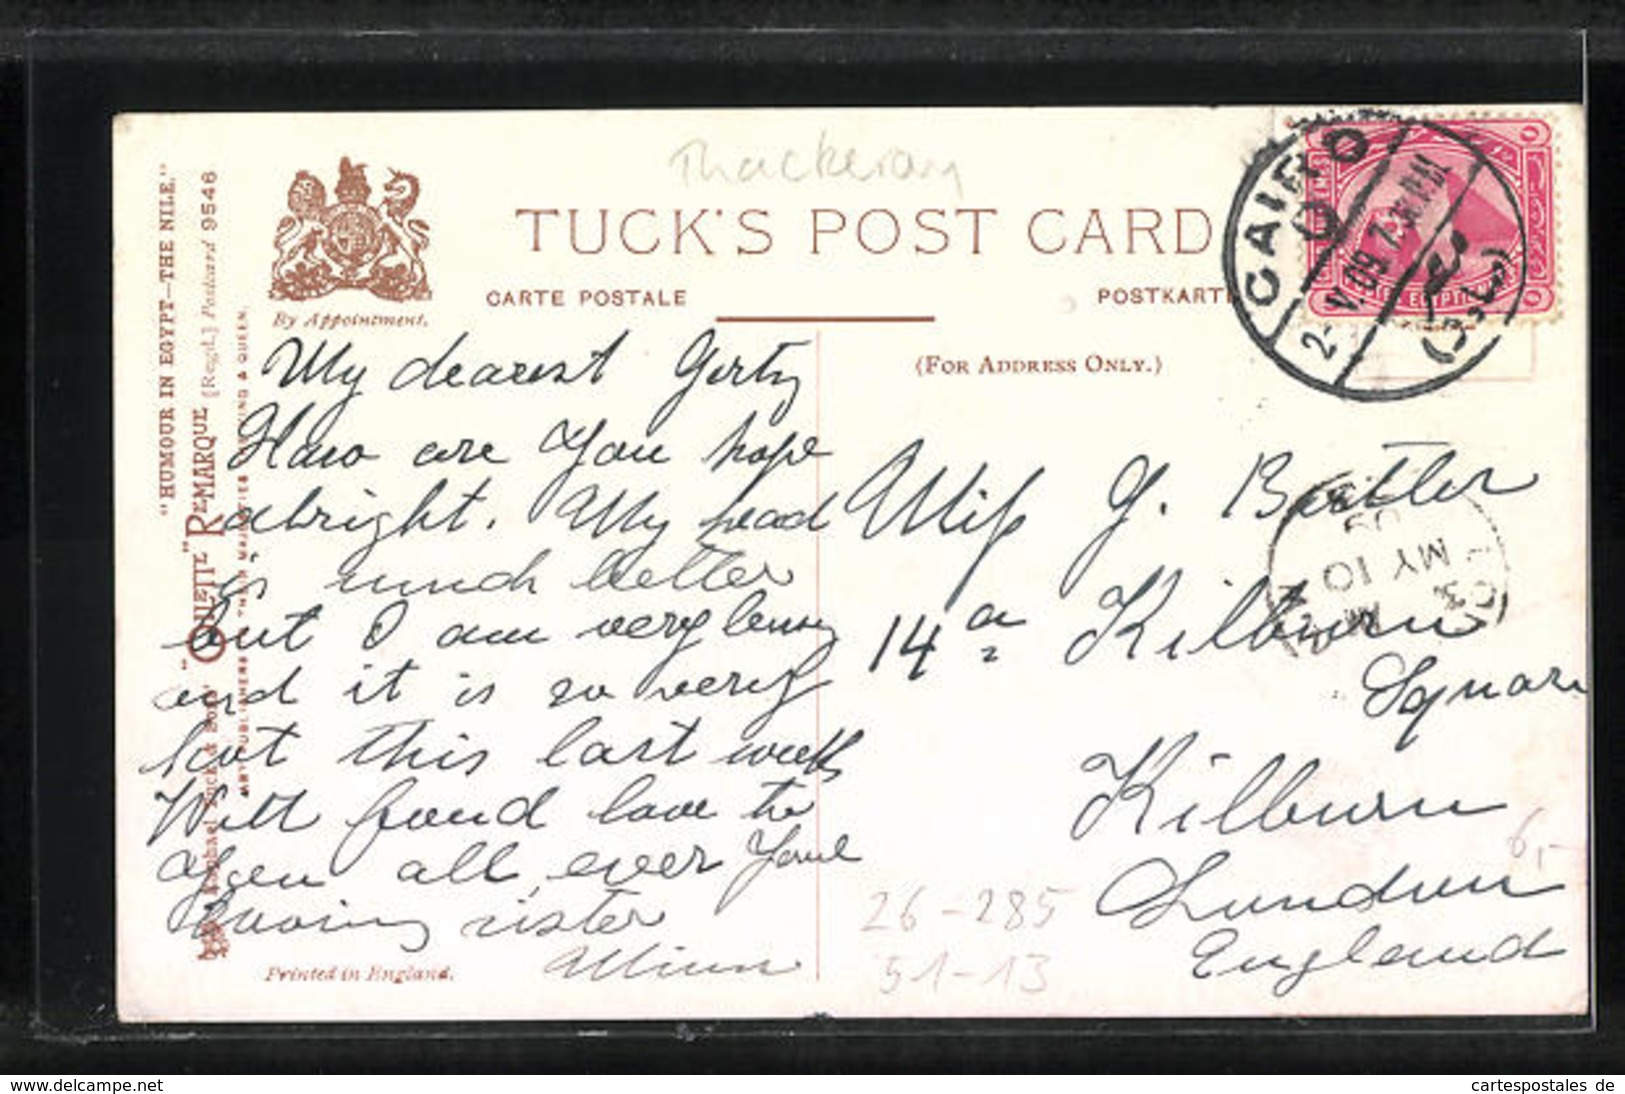 Thackeray
TUCK'S POST CARD
CARTE POSTALE
POSTKARTE
By Appointment.
(FOR ADDRESS ONLY.)
"HUMOUR IN EGYPT—THE NILE."
"OILETTE" REMARQUE [Regd.] Postcard 9546
Raphael Tuck & Sons
ART PUBLISHERS THEIR MAJESTIES KING & QUEEN.
CAIRO D
2-V 09 7.30 PM
My dearest Gerty
How are you hope
alright. My head
is much better
but I am very
and it is so very
hot this last week
With fond love to
you all, ever your
loving sister
Minn
Miss G. Butler
14 a Kilburn
Square
Kilburn
London
England
MY 10
09
26-285
51-13
6,-
Printed in England.
www.delcampe.net
cartespostales de